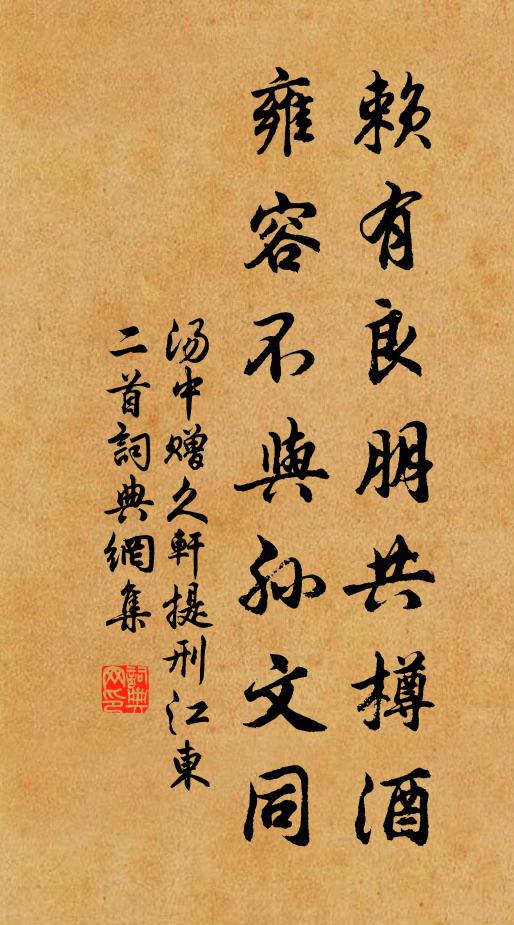 赖有良朋共樽酒
雍容不與孙文同
汤中赠久軒提刑江東
二首詞典網集
詞典网印